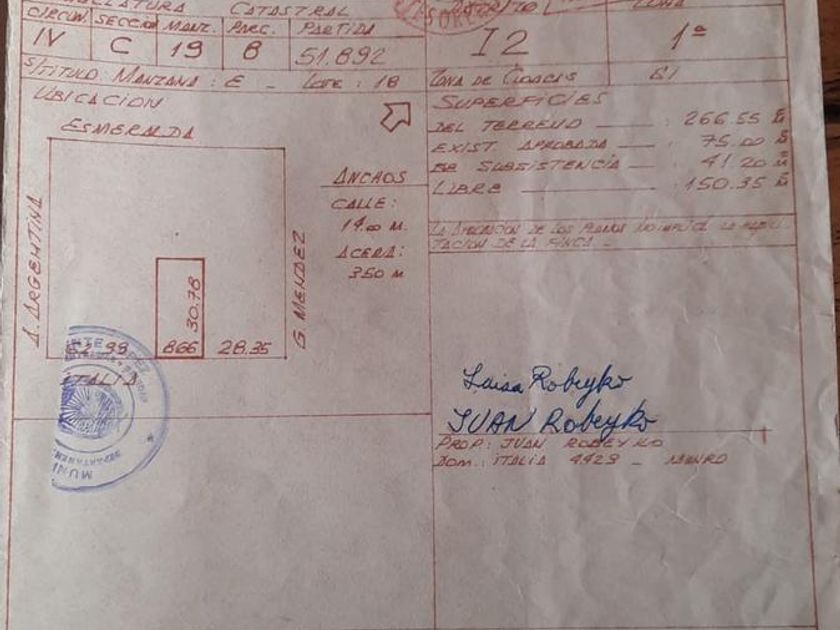 NOMENCLATURA CATASTRAL
CIRCUN. SECCION MANZ. PARC. PARTIDA
IV C 19 8 51.892
S/TITULO: MANZANA: E - LOTE: 18
UBICACION
ESMERALDA
A. ARGENTINA
G. MENDEZ
30.78
8.66 28.35
ITALIA
ANCHOS
CALLE:
14.00 M.
ACERA:
3.50 M
DISTRITO ZONA
I2 1ª
ZONA DE CLOACAS SI
SUPERFICIES
DEL TERRENO : 266.55
EXIST. APROBADA : 75.00
SUBSISTENCIA : 41.20
LIBRE : 150.35
LA APROBACION DE LOS PLANOS NO IMPLICA LA HABILI-
TACION DE LA FINCA -
Luisa Robeyko
JUAN Robeyko
PROP: JUAN ROBEYKO
DOM.: ITALIA 4429 - MUNRO